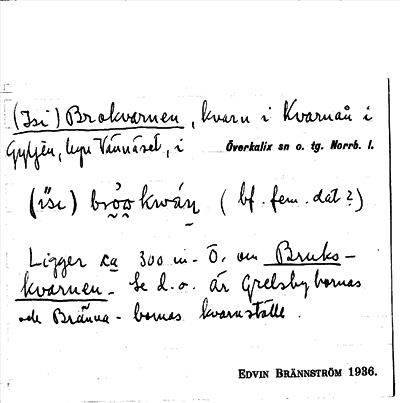 (Isi) Brokvarnen, kvarn i Kvarnån i
Gyljen, hyn Vännäset, i Överkalix sn o. tg. Norrb. l.
(ísı) bro̯o̯kwán̠ (bf. fem. dat?)
Ligger ca 300 m. Ö. om Bruks-
kvarnen. Se d.o. är Grelsbybornas
och Bränna-bornas kvarnställe.
EDVIN BRÄNNSTRÖM 1936.